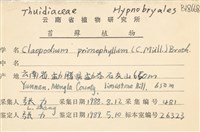 Thuidiaceae Hypnobryales
云南省植物研究所
苔藓植物
学名 Claopodium prionophyllum (C. Müll.) Broth.
云南省勐腊县勐仑石灰山 650m
Yunnan, Mengla County, limestone hill, 650 m
采集人 张力 采集日期 1988.8.12 采集号 481
鉴定人 张力 鉴定日期 1989.5.10 标本室号 26523